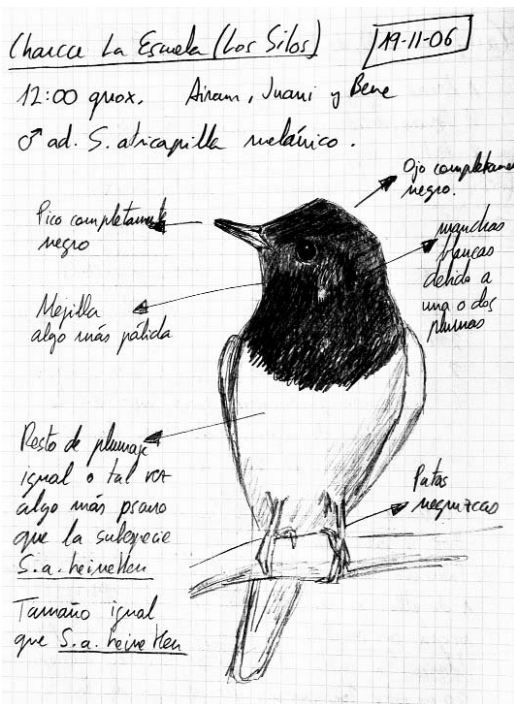 Charca La Escuela (Los Silos)
19-11-06
12:00 aprox. Airam, Juani y Bene
♂ ad. S. atricapilla melánico.
Ojo completamen
negro.
Pico completamente
negro
manchas
blancas
debido a
una o dos
plumas
Mejilla
algo más pálida
Resto de plumaje
igual o tal vez
algo más oscuro
que la subespecie
S. a. heineken
Patas
negruzcas
Tamaño igual
que S. a. heineken